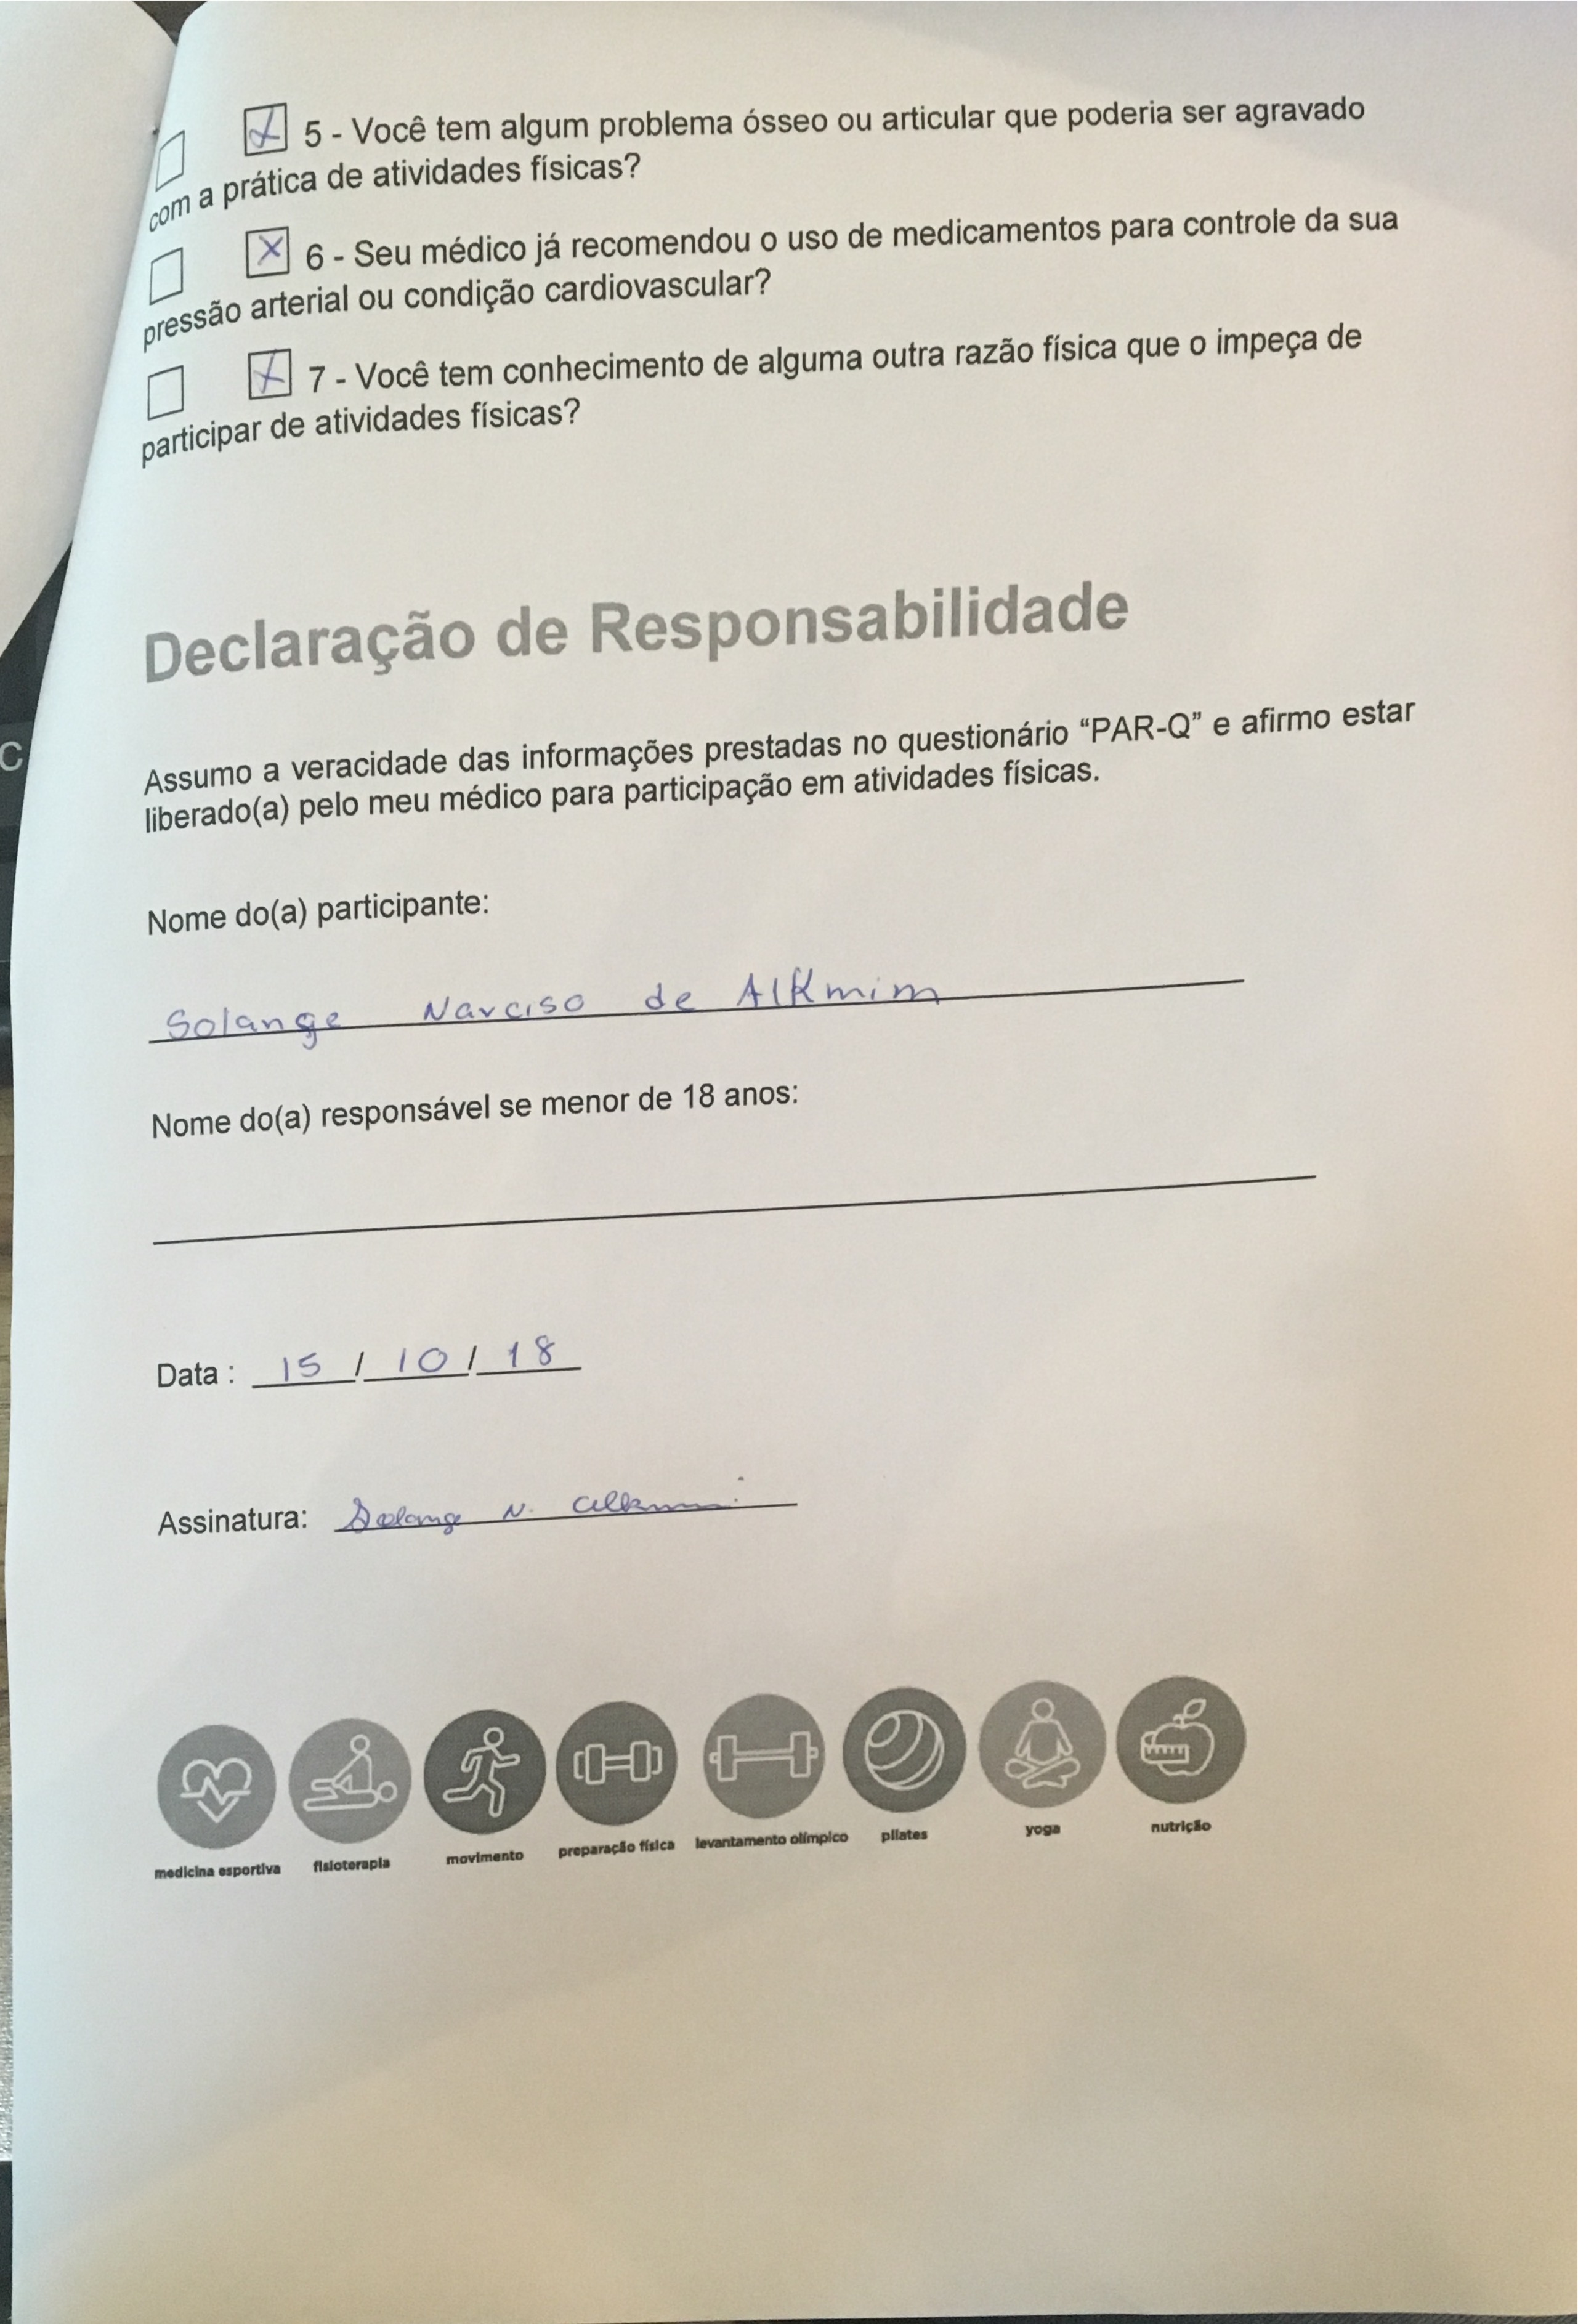 5 - Você tem algum problema ósseo ou articular que poderia ser agravado
com a prática de atividades físicas?
6 - Seu médico já recomendou o uso de medicamentos para controle da sua
pressão arterial ou condição cardiovascular?
7 - Você tem conhecimento de alguma outra razão física que o impeça de
participar de atividades físicas?
Declaração de Responsabilidade
Assumo a veracidade das informações prestadas no questionário “PAR-Q” e afirmo estar
liberado(a) pelo meu médico para participação em atividades físicas.
Nome do(a) participante:
Solange Narciso de Alkmim
Nome do(a) responsável se menor de 18 anos:
Data : 15 / 10 / 18
Assinatura: Solange N. Alkmim
medicina esportiva fisioterapia movimento preparação física levantamento olímpico pilates yoga nutrição
C